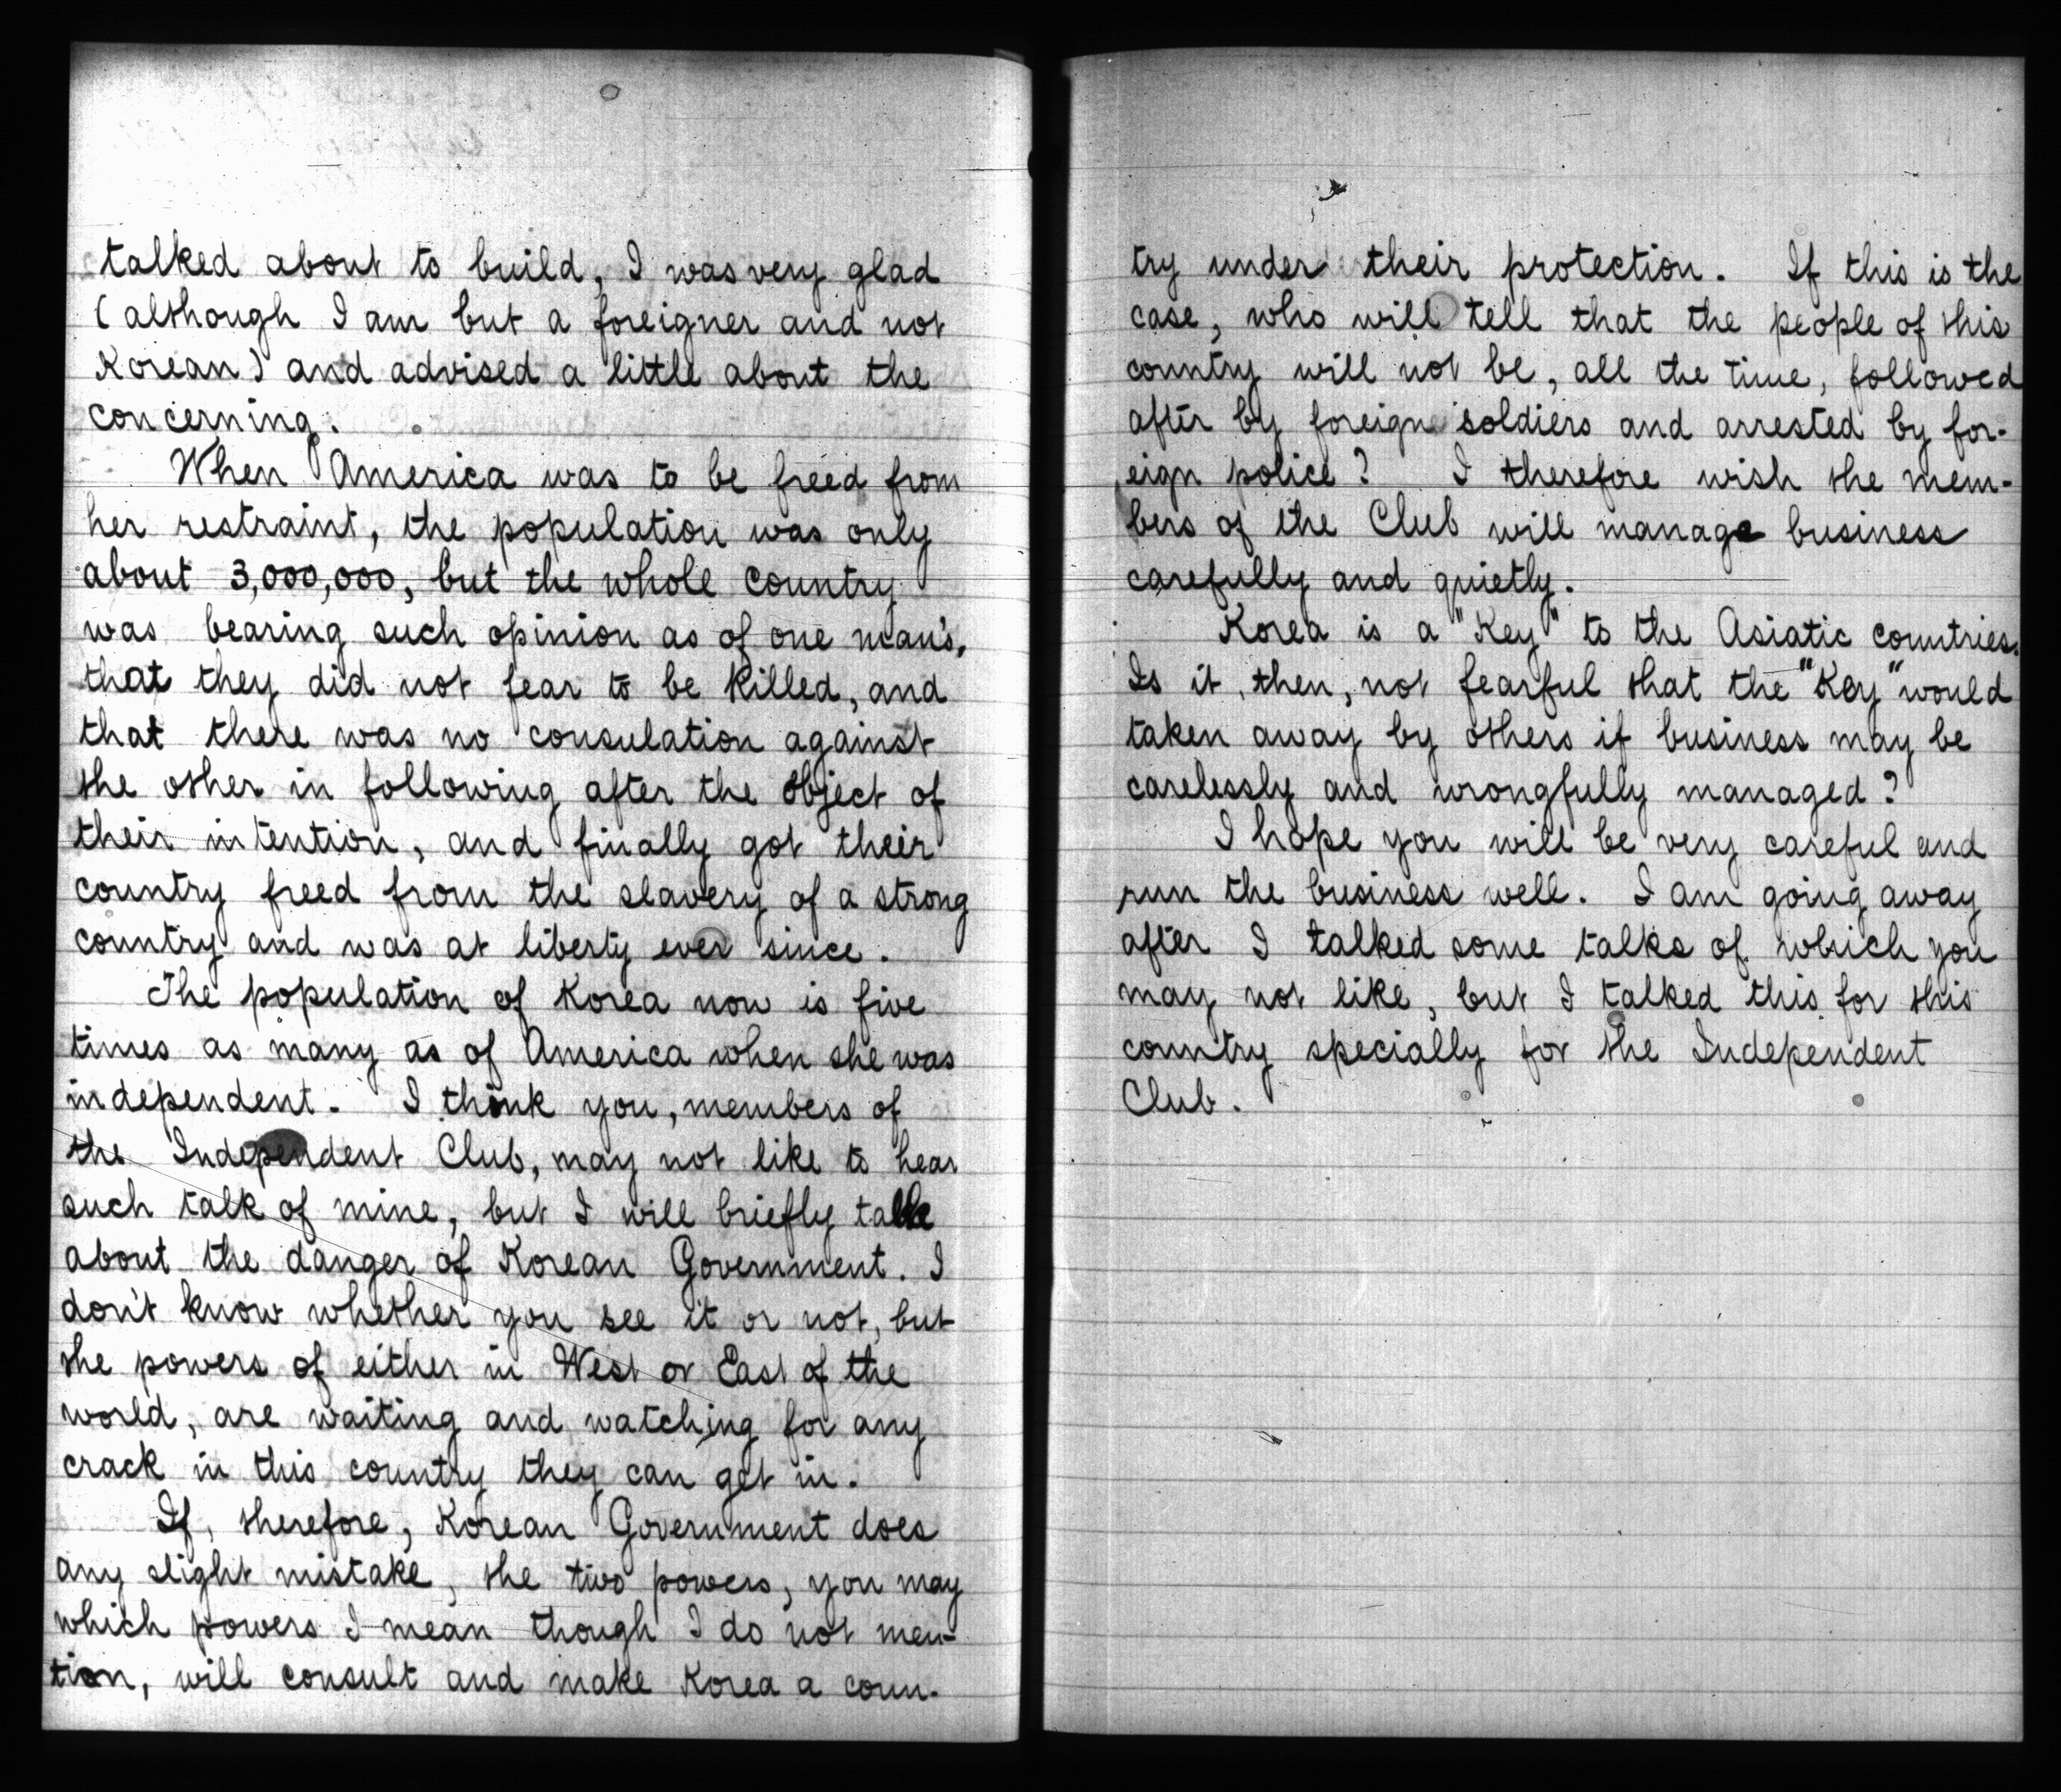 talked about to build, I was very glad
(although I am but a foreigner and not
Korean) and advised a little about the
concerning.
When America was to be freed from
her restraint, the population was only
about 3,000,000, but the whole country
was bearing such opinion as of one man's,
that they did not fear to be killed, and
that there was no consulation against
the other in following after the object of
their intention, and finally got their
country freed from the slavery of a strong
country and was at liberty ever since.
The population of Korea now is five
times as many as of America when she was
independent. I think you, members of
the Independent Club, may not like to hear
such talk of mine, but I will briefly talk
about the danger of Korean Government. I
don't know whether you see it or not, but
the powers of either in West or East of the
world, are waiting and watching for any
crack in this country they can get in.
If, therefore, Korean Government does
any slight mistake, the two powers, you may
which powers I mean though I do not men-
tion, will consult and make Korea a coun-
try under their protection. If this is the
case, who will tell that the people of this
country will not be, all the time, followed
after by foreign soldiers and arrested by for-
eign police? I therefore wish the mem-
bers of the Club will manage business
carefully and quietly.
Korea is a "Key" to the Asiatic countries.
Is it, then, not fearful that the "Key" would
taken away by others if business may be
carelessly and wrongfully managed?
I hope you will be very careful and
run the business well. I am going away
after I talked some talks of which you
may not like, but I talked this for this
country specially for the Independent
Club.